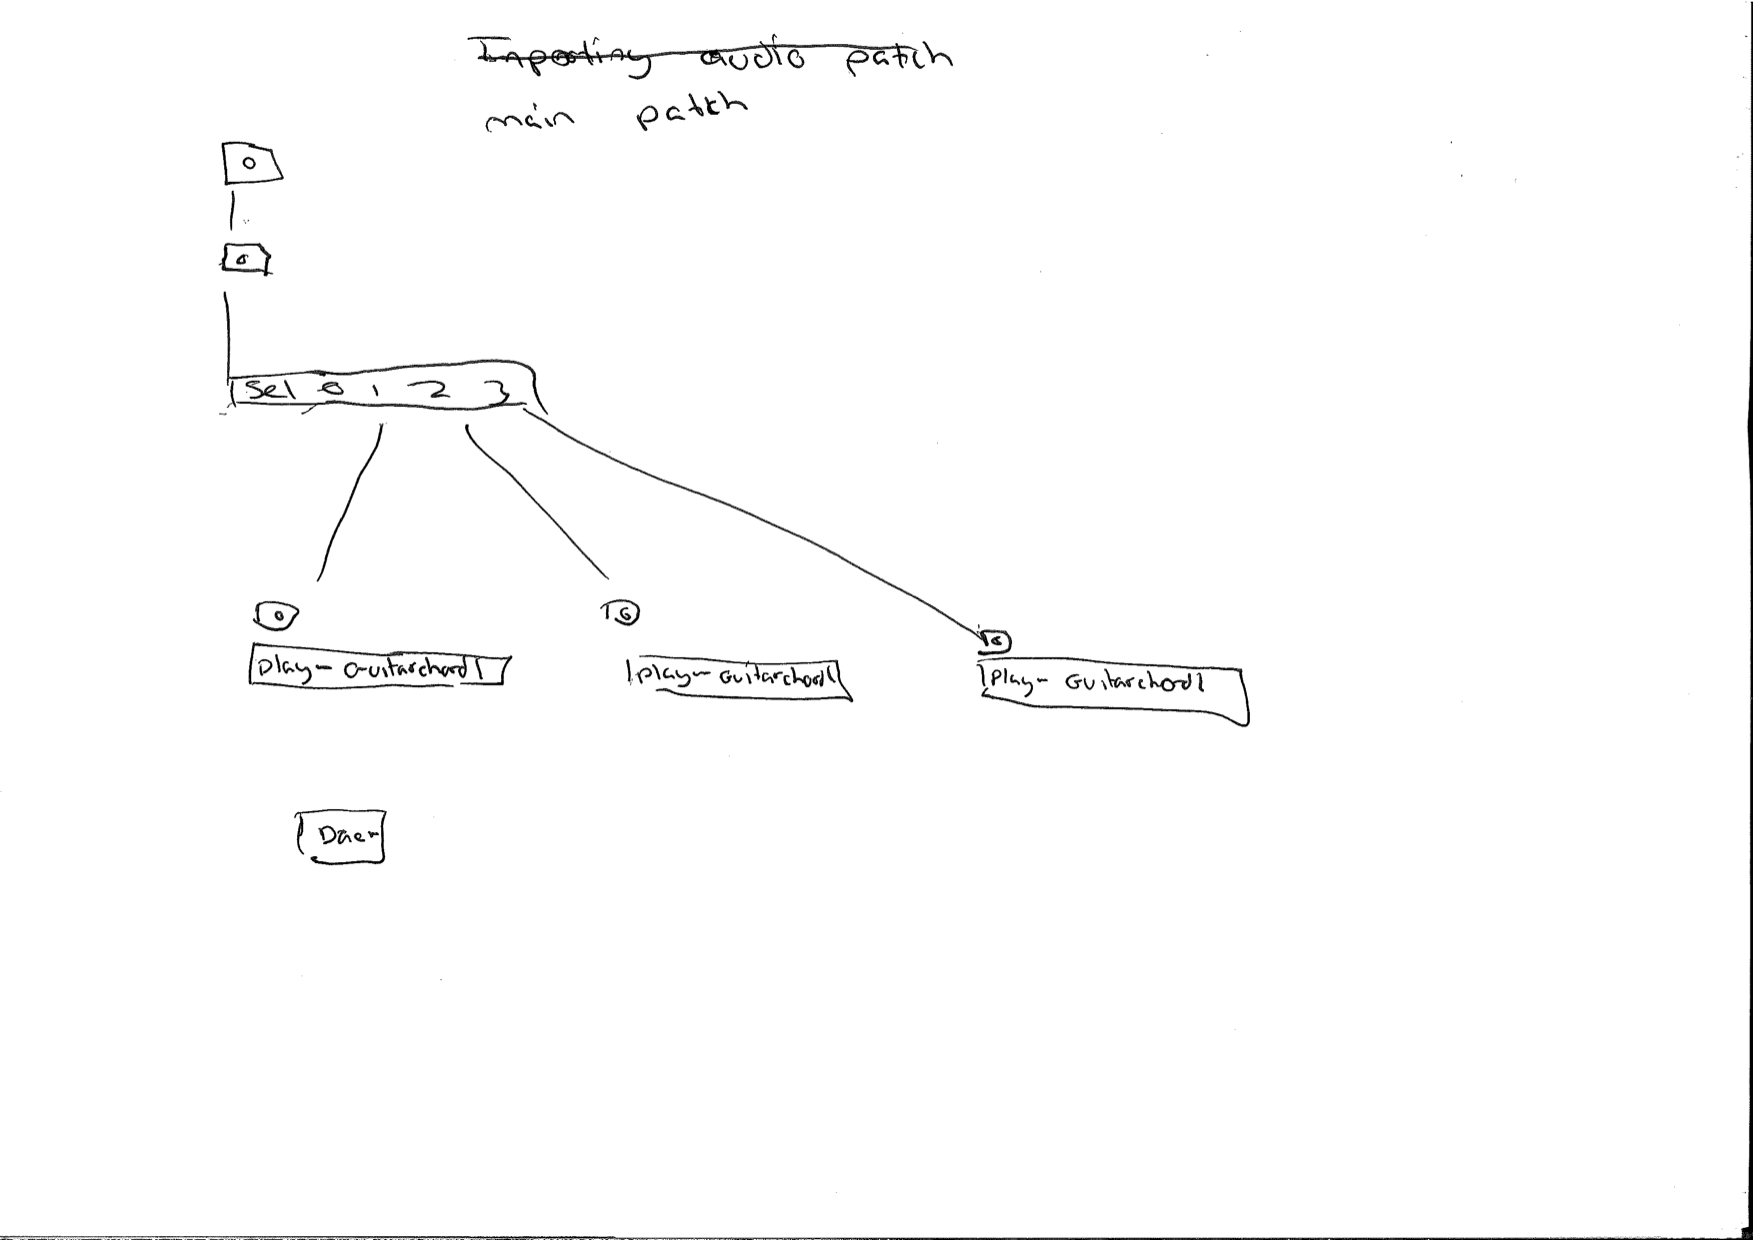 Importing audio patch
main patch
0
0
Sel 0 1 2 3
0
0
0
play~ Guitarchord1
play~ Guitarchord1
play~ Guitarchord1